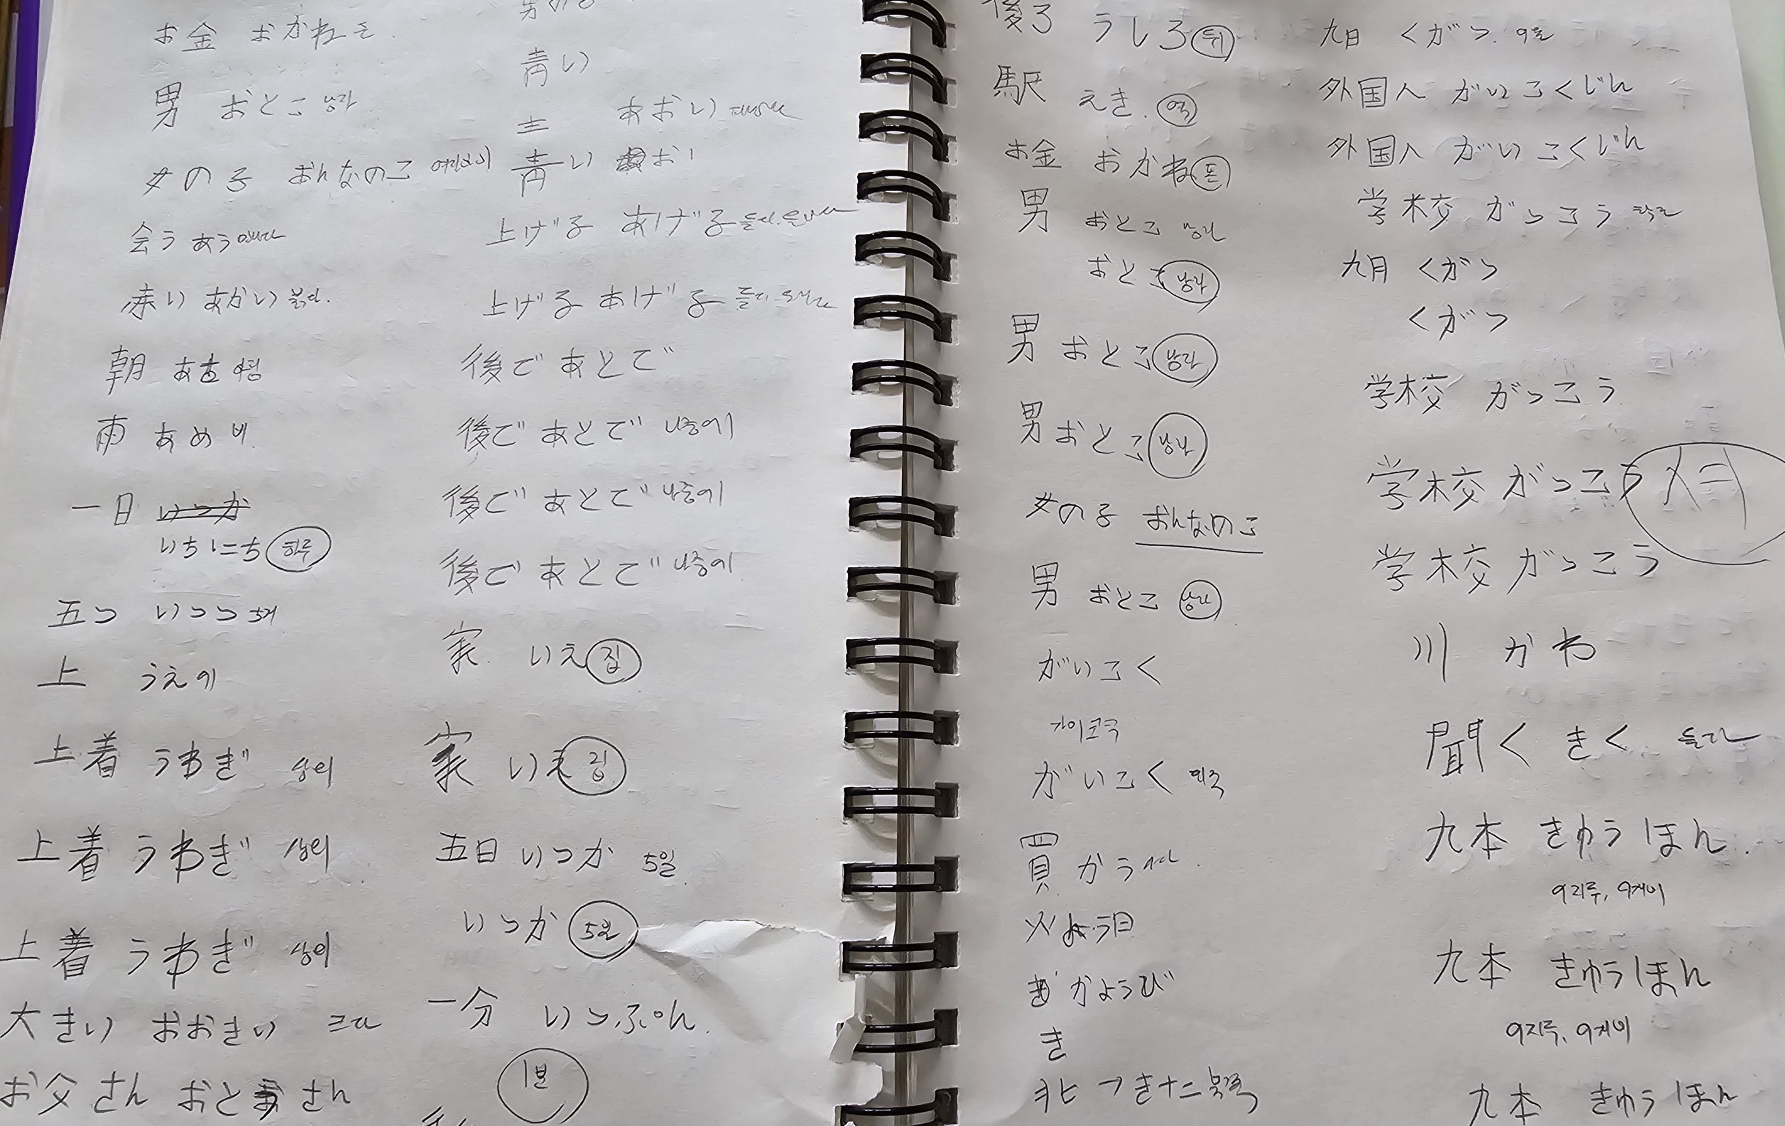 お金 おかね 돈
男 おとこ 남자
女の子 おんなのこ 여자아이
会う あう 만나다
赤い あかい 붉다.
朝 あさ 아침
雨 あめ 비
一日 いつか
いちにち 하루
五つ いつつ 5개
上 うえ 위
上着 うわぎ 상의
上着 うわぎ 상의
上着 うわぎ 상의
大きい おおきい 크다
お父さん おとうさん
青い
あおい
青い おい
上げる あげる
上げる あげる
後で あとで
後で あとで 나중에
後で あとで 나중에
後で あとで 나중에
家 いえ 집
家 いえ 집
五日 いつか 5일
いつか 5일
一分 いっぷん
1분
後ろ うしろ 뒤
駅 えき 역
お金 おかね 돈
男 おとこ 남자
おとこ 남자
男 おとこ 남자
男 おとこ 남자
女の子 おんなのこ
男 おとこ 남자
がいこく
가이코쿠
がいこく 외국
買 かう 사다
火よう日
かようび
き
北
九月 くがつ 9월
外国人 がいこくじん
外国人 がいこくじん
学校 がっこう 학교
九月 くがつ
くがつ
学校 がっこう
学校 がっこう
学校 がっこう
川 かわ
聞く きく 듣다
九本 きゅうほん
9자루, 9개비
九本 きゅうほん
9자루, 9개비
九本 きゅうほん